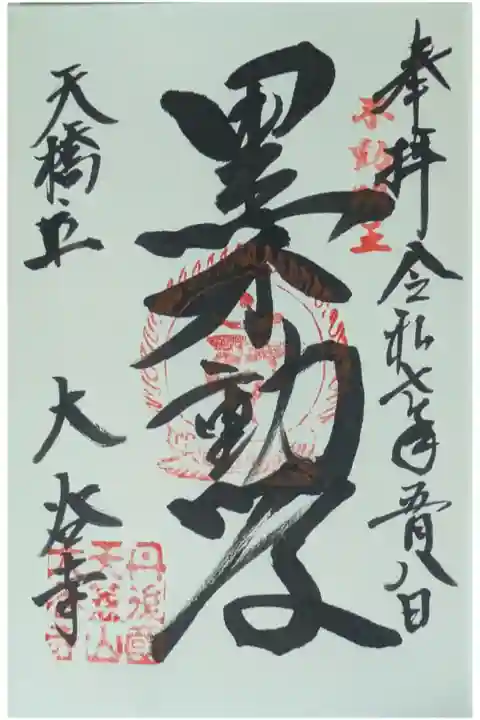 奉拝 令和七年五月八日
不動明王
黒不動尊
天橋立 大谷寺
丹後國
天蓋山
大谷寺